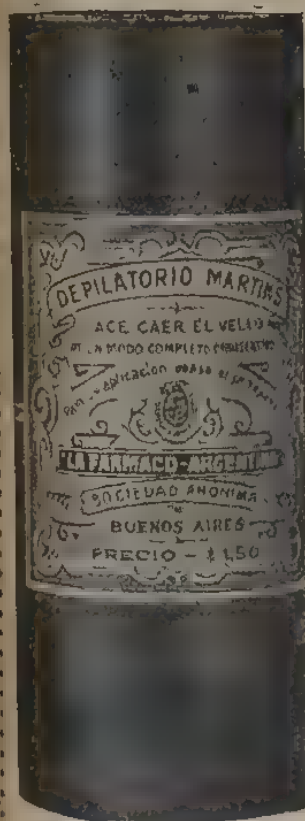 DEPILATORIO MARTINS
ACE CAER EL VELLO
MODO COMPLETO
aplicacion
"LA FARMACO-ARGENTINA"
SOCIEDAD ANONIMA
BUENOS AIRES
PRECIO - $ 1,50